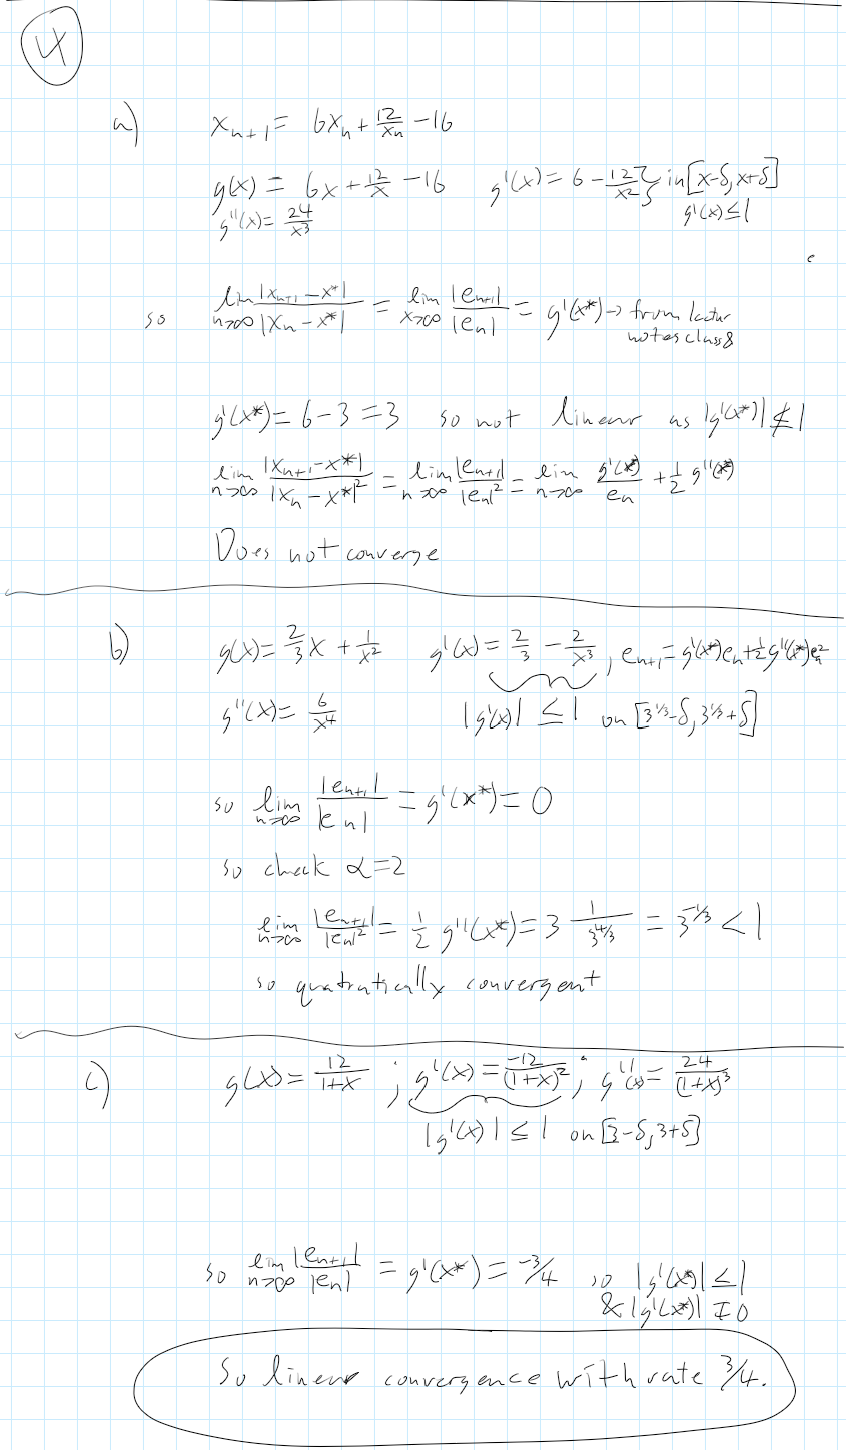 4
a) x_{n+1} = 6x_n + 12/x_n - 16
g(x) = 6x + 12/x - 16 g'(x) = 6 - 12/x² ξ in [x-δ, x+δ]
g''(x) = 24/x³ g'(x) ≤ 1
so lim_{n→∞} |x_{n+1} - x*| / |x_n - x*| = lim_{x→∞} |e_{n+1}| / |e_n| = g'(x*) → from lectur
notes class 8
g'(x*) = 6 - 3 = 3 so not linear as |g'(x*)| ≰ 1
lim_{n→∞} |x_{n+1} - x*| / |x_n - x*|² = lim_{n→∞} |e_{n+1}| / |e_n|² = lim_{n→∞} g'(x*)/e_n + 1/2 g''(x*)
Does not converge
b) g(x) = 2/3 x + 1/x² g'(x) = 2/3 - 2/x³, e_{n+1} = g'(x*)e_n + 1/2 g''(x*)e_n²
g''(x) = 6/x⁴ |g'(x)| ≤ 1 on [3^{1/3}-δ, 3^{1/3}+δ]
so lim_{n→∞} |e_{n+1}| / |e_n| = g'(x*) = 0
so check α = 2
lim_{n→∞} |e_{n+1}| / |e_n|² = 1/2 g''(x*) = 3 1/3^{4/3} = 3^{-1/3} < 1
so quatratically convergent
c) g(x) = 12/(1+x) ; g'(x) = -12/(1+x)² ; g''(x) = 24/(1+x)³
|g'(x)| ≤ 1 on [3-δ, 3+δ]
so lim_{n→∞} |e_{n+1}| / |e_n| = g'(x*) = -3/4 so |g'(x*)| ≤ 1
& |g'(x*)| ≠ 0
So linear convergence with rate 3/4.